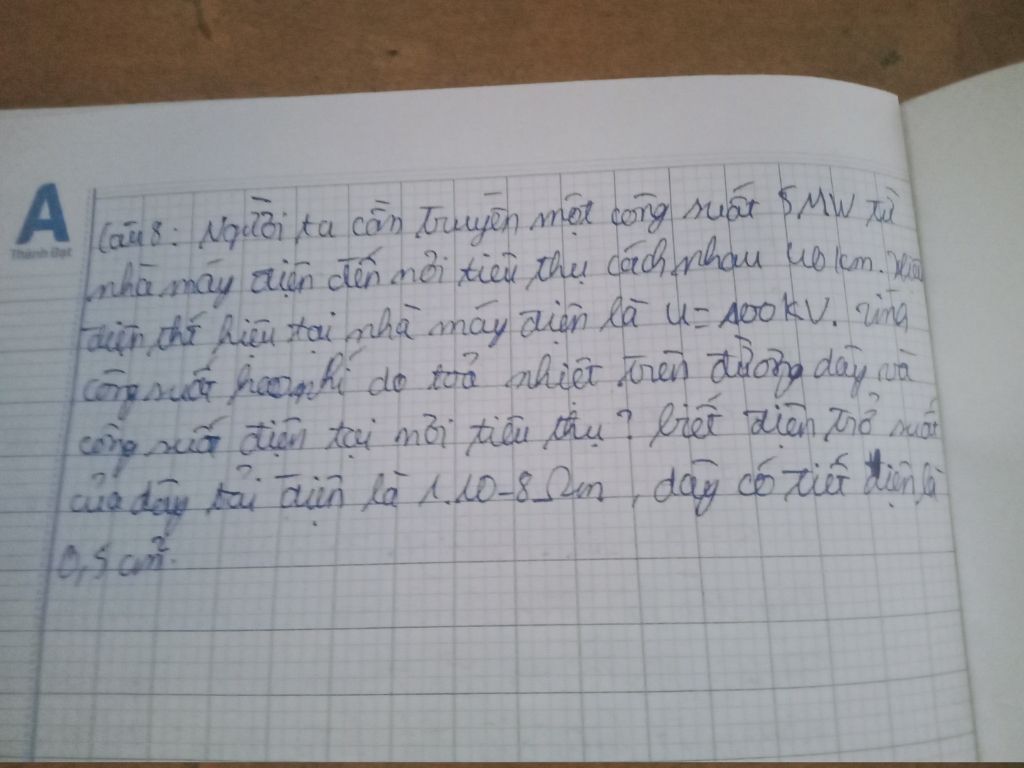 A
Thành Đạt
Câu 8: Người ta cần truyền một công suất 5MW từ
nhà máy điện đến nơi tiêu thụ cách nhau 40 km.
điện thế hiệu tại nhà máy điện là U = 100KV. Tính
công suất hao phí do toả nhiệt trên đường dây và
công suất điện tại nơi tiêu thụ? biết điện trở suất
của dây tải điện là 1.10-8Ωm, dây có tiết diện là
0,5 cm².